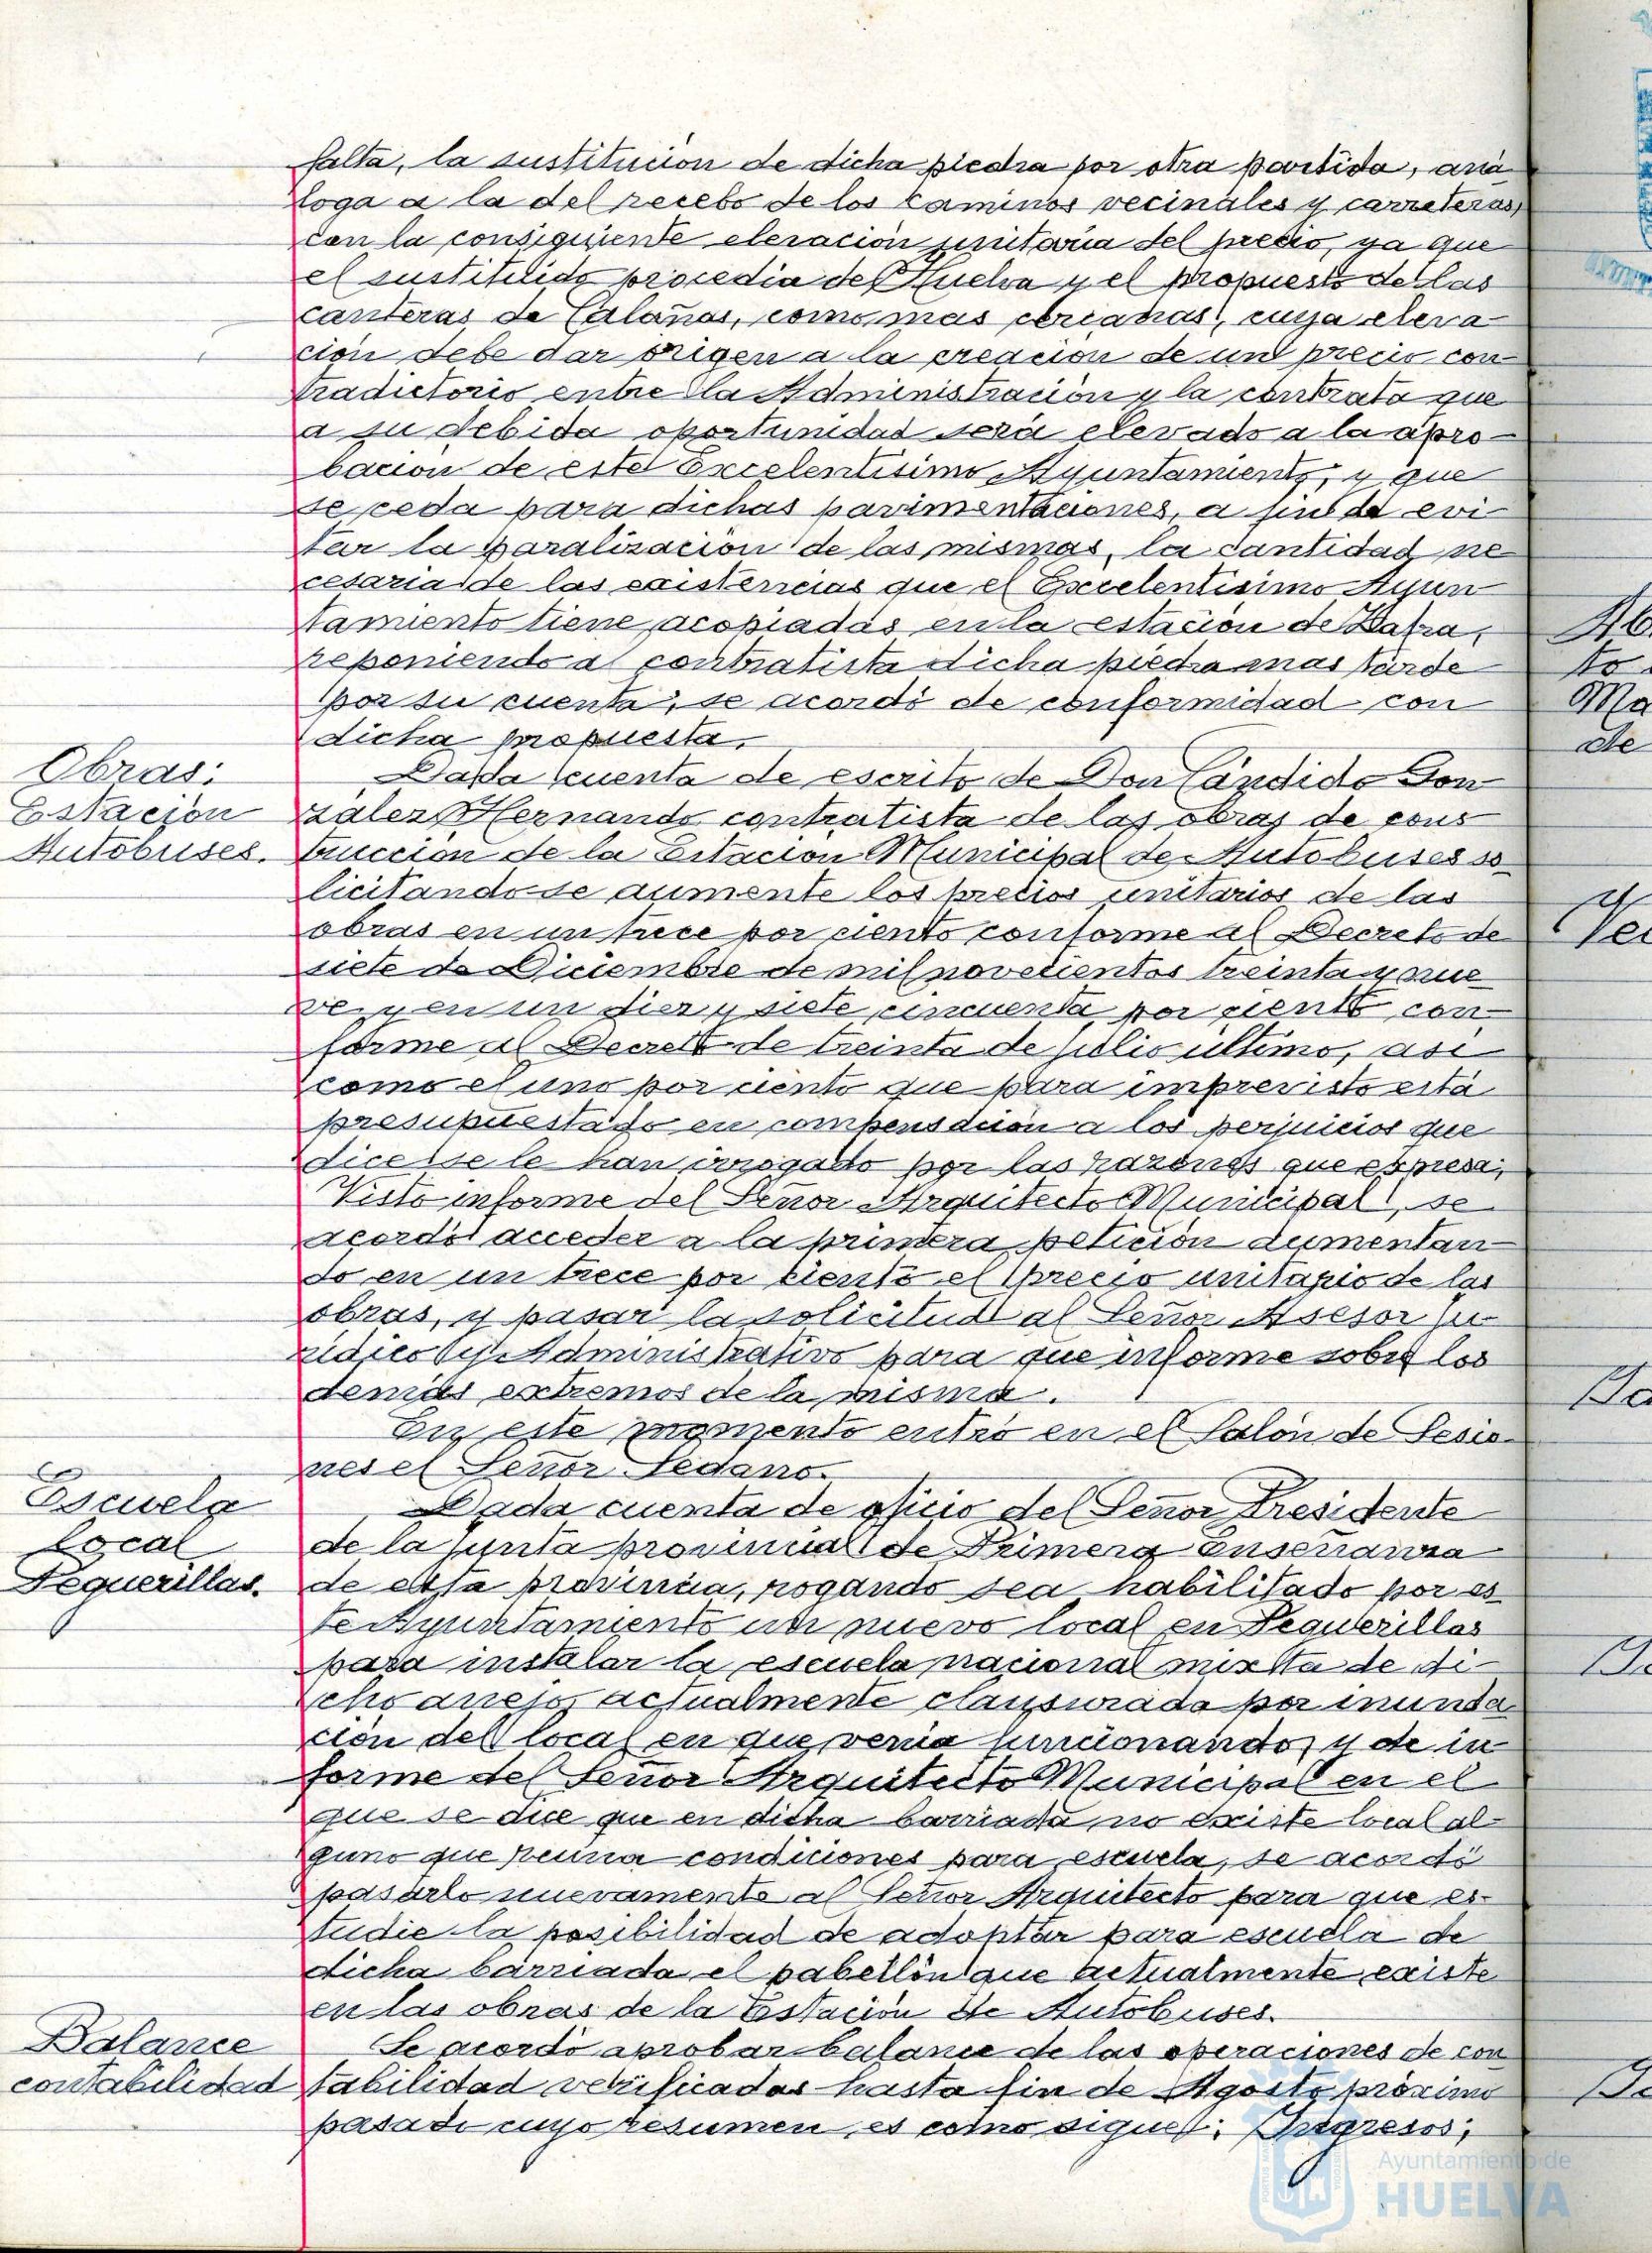 falta, la sustitución de dicha piedra por otra partida, aná
loga a la del recebo de los caminos vecinales y carreteras,
con la consiguiente elevación unitaria del precio, ya que
el sustituido procedia de Huelva y el propuesto de las
canteras de Calañas, como mas cercanas, cuya eleva-
ción debe dar origen a la creación de un precio con-
tradictorio entre la Administración y la contrata que
a su debida oportunidad será elevado a la apro-
bación de este Excelentisimo Ayuntamiento, y que
se ceda para dichas pavimentaciones, a fin de evi-
tar la paralización de las mismas, la cantidad ne-
cesaria de las existencias que el Excelentisimo Ayun
tamiento tiene acopiadas en la estación de Zafra,
reponiendo al contratista dicha piedra mas tarde
por su cuenta, se acordó de conformidad con
dicha propuesta.
Obras:
Estación
Autobuses.
Dada cuenta de escrito de Don Cándido Gon-
zalez Hernando contratista de las obras de cons
trucción de la Estación Municipal de Autobuses so-
licitandose aumente los precios unitarios de las
obras en un trece por ciento conforme al Decreto de
siete de Diciembre de mil novecientos treinta y nue
ve, y en un diez y siete cincuenta por ciento con-
forme al Decreto de treinta de julio último, asi
como el uno por ciento que para imprevisto está
presupuestado en compensación a los perjuicios que
dice se le han irrogado por las razones que expresa;
Visto informe del Señor Arquitecto Municipal, se
acordó acceder a la primera petición aumentan-
do en un trece por ciento el precio unitario de las
obras, y pasar la solicitud al Señor Asesor Ju-
ridico y Administrativo para que informe sobre los
demás extremos de la misma.
En este momento entró en el Salón de Sesio-
nes el Señor Sedano.
Escuela
Local
Pequerillas.
Dada cuenta de oficio del Señor Presidente
de la Junta provincial de Primera Enseñanza
de esta provincia, rogando sea habilitado por es
te Ayuntamiento un nuevo local en Pequerillas
para instalar la escuela nacional mixta de di-
cho anejo, actualmente clausurada por inunda
ción del local en que venia funcionando, y de in-
forme del Señor Arquitecto Municipal en el
que se dice que en dicha barriada no existe local al-
guno que reuna condiciones para escuela, se acordó
pasarlo nuevamente al Señor Arquitecto para que es-
tudie la posibilidad de adoptar para escuela de
dicha barriada el pabellón que actualmente existe
en las obras de la Estación de Autobuses.
Balance
contabilidad
Se acordó aprobar balance de las operaciones de con
tabilidad verificadas hasta fin de Agosto próximo
pasado cuyo resumen es como sigue: Ingresos;
Ayuntamiento de
HUELVA